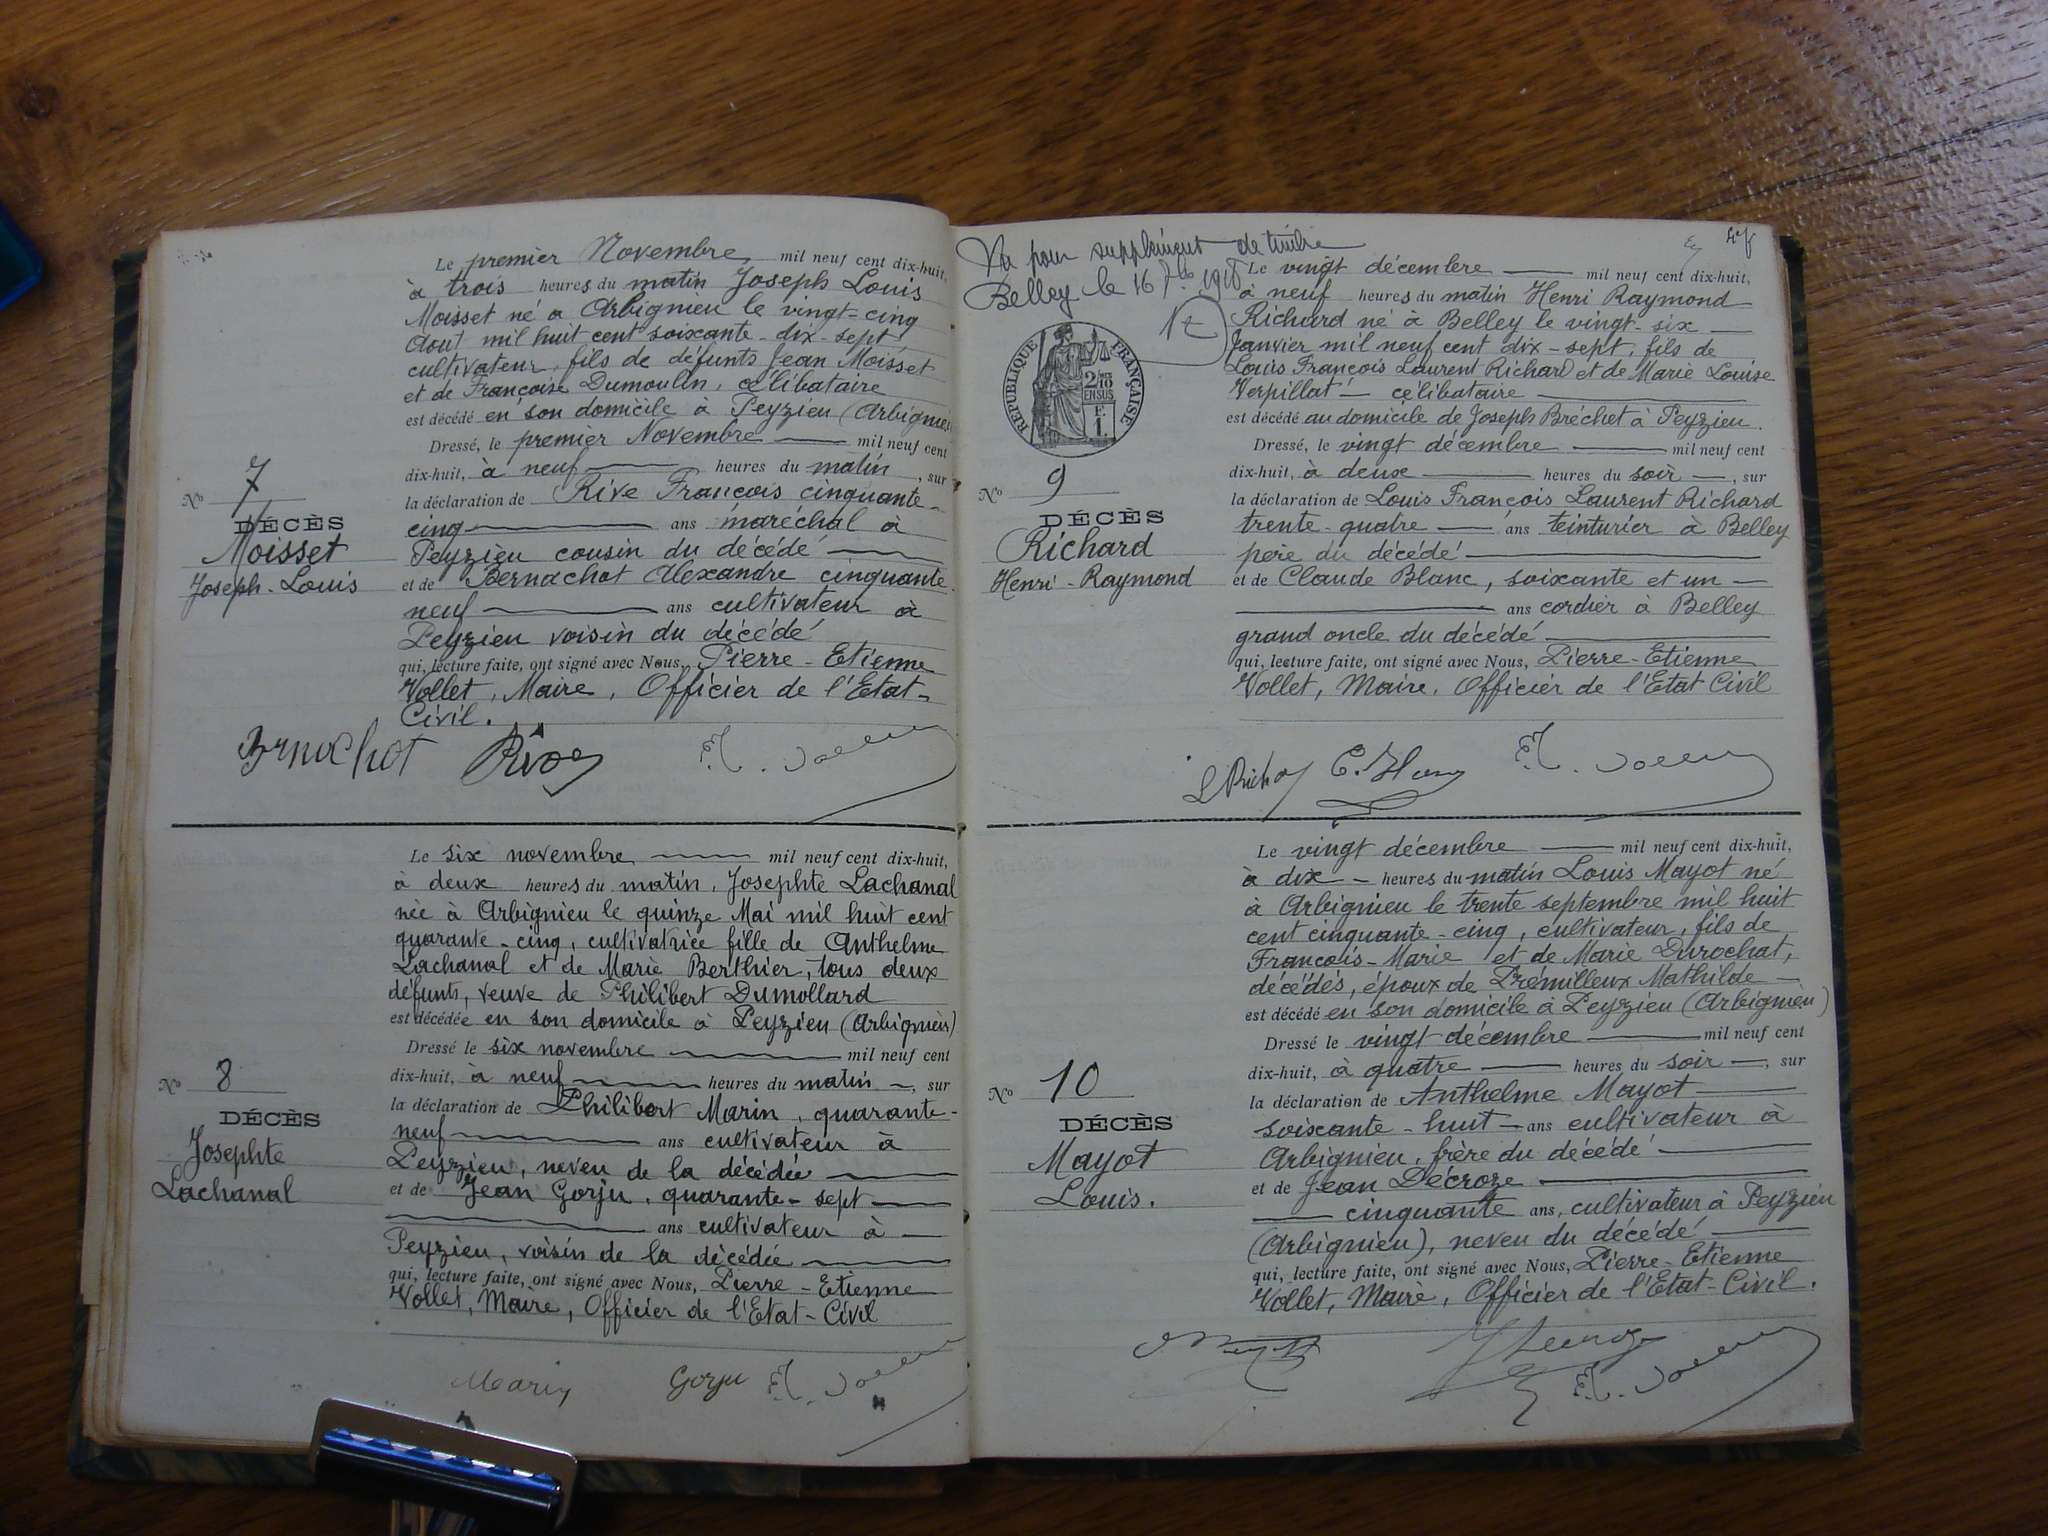 Le premier Novembre mil neuf cent dix-huit,
à trois heures du matin Joseph Louis
Moisset né a Arbignieu le vingt-cinq
Aout mil huit cent soixante-dix-sept
cultivateur, fils de défunts Jean Moisset
et de Françoise Dumoulin, célibataire
est décédé en son domicile à Peyzieu (Arbignieu
Dressé, le premier Novembre mil neuf cent
dix-huit, à neuf heures du matin, sur
la déclaration de Rive François cinquante-
cinq ans maréchal à
Peyzieu cousin du décédé
et de Bernachot Alexandre cinquante
neuf ans cultivateur à
Peyzieu voisin du décédé
qui, lecture faite, ont signé avec Nous, Pierre-Etienne
Vollet, Maire, Officier de l'Etat-
Civil.
No 7
DÉCÈS
Moisset
Joseph-Louis
Rive
Le six novembre mil neuf cent dix-huit,
à deux heures du matin, Josephte Lachanal
née à Arbignieu le quinze Mai mil huit cent
quarante-cinq, cultivatrice fille de Anthelme
Lachanal et de Marie Berthier, tous deux
défunts, veuve de Philibert Dumollard
est décédée en son domicile à Peyzieu (Arbignieu)
Dressé le six novembre mil neuf cent
dix-huit, à neuf heures du matin, sur
la déclaration de Philibert Marin, quarante-
neuf ans cultivateur à
Peyzieu, neveu de la décédée
et de Jean Gorju, quarante-sept
ans cultivateur à
Peyzieu, voisin de la décédée
qui, lecture faite, ont signé avec Nous, Pierre-Etienne
Vollet, Maire, Officier de l'Etat-Civil
No 8
DÉCÈS
Josephte
Lachanal
Marin Gorju
Vu pour supplément de timbre
Belley le 16 7bre 1918
RÉPUBLIQUE FRANÇAISE
2/10
EN SUS
F.
1.
Le vingt décembre mil neuf cent dix-huit,
à neuf heures du matin Henri Raymond
Richard né à Belley le vingt-six
Janvier mil neuf cent dix-sept, fils de
Louis François Laurent Richard et de Marie Louise
Verpillat célibataire
est décédé au domicile de Joseph Bréchet à Peyzieu.
Dressé, le vingt décembre mil neuf cent
dix-huit, à deux heures du soir, sur
la déclaration de Louis François Laurent Richard
trente-quatre ans teinturier à Belley
père du décédé
et de Claude Blanc, soixante et un
ans cordier à Belley
grand oncle du décédé
qui, lecture faite, ont signé avec Nous, Pierre-Etienne
Vollet, Maire, Officier de l'Etat Civil
No 9
DÉCÈS
Richard
Henri-Raymond
Le vingt décembre mil neuf cent dix-huit,
à dix heures du matin Louis Mayot né
à Arbignieu le trente septembre mil huit
cent cinquante-cinq, cultivateur, fils de
François-Marie et de Marie Durochat,
décédés, époux de Prémilleux Mathilde
est décédé en son domicile à Peyzieu (Arbignieu)
Dressé le vingt décembre mil neuf cent
dix-huit, à quatre heures du soir, sur
la déclaration de Anthelme Mayot
soixante-huit ans cultivateur à
Arbignieu, frère du décédé
et de Jean Décroze
cinquante ans, cultivateur à Peyzieu
(Arbignieu), neveu du décédé
qui, lecture faite, ont signé avec Nous, Pierre-Etienne
Vollet, Maire, Officier de l'Etat-Civil.
No 10
DÉCÈS
Mayot
Louis.